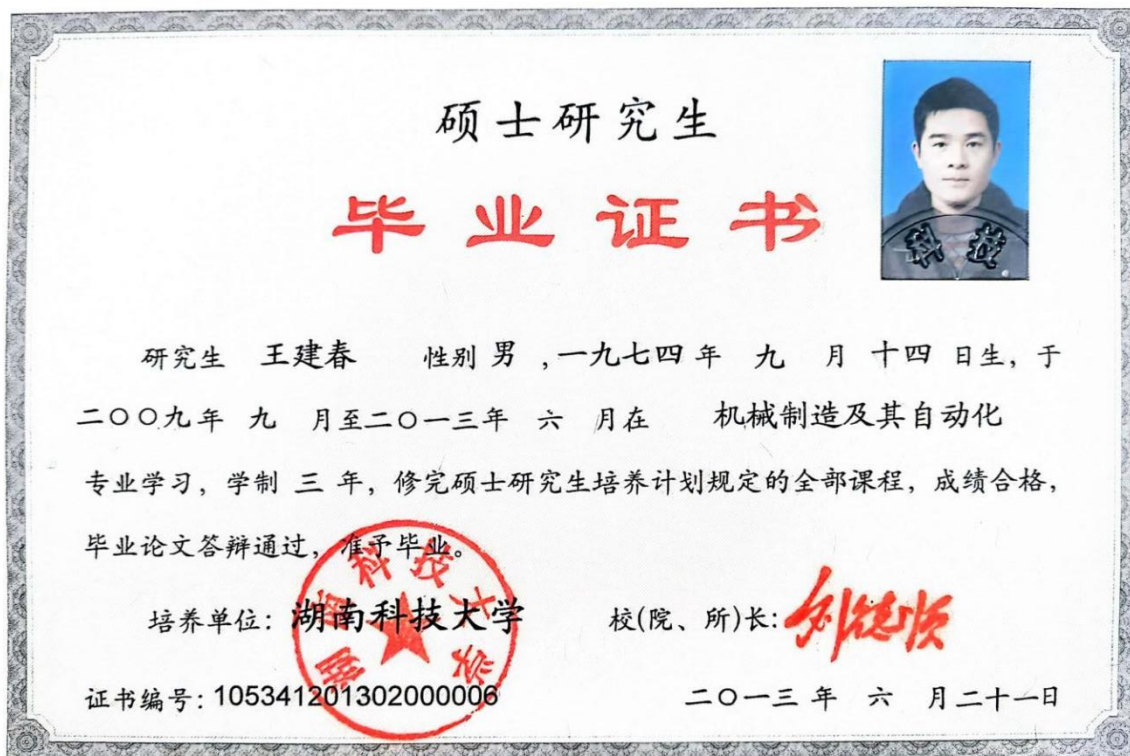 硕士研究生
毕业证书
科技
研究生 王建春 性别 男 ,一九七四 年 九 月 十四 日生, 于
二〇〇九年 九 月至二〇一三年 六 月在 机械制造及其自动化
专业学习, 学制 三 年, 修完硕士研究生培养计划规定的全部课程, 成绩合格,
毕业论文答辩通过, 准予毕业。
湖南科技大学
培养单位: 湖南科技大学 校(院、所)长: 刘德顺
证书编号: 105341201302000006 二〇一三 年 六 月二十一日